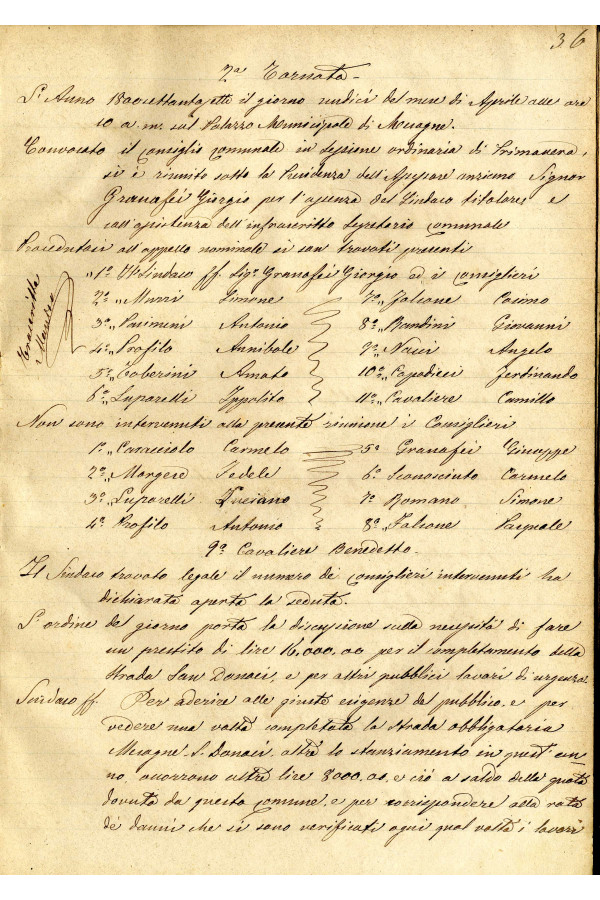 36
2ª Tornata -
L'Anno 1800settantasette il giorno undici del mese di Aprile alle ore
10 a. m. sul Palazzo Municipale di Mesagne.
Convocato il consiglio comunale in sessione ordinaria di Primavera,
si è riunito sotto la Presidenza dell'Assessore anziano Signor
Granafei Giorgio per l'assenza del Sindaco titolare, e
coll'assistenza dell'infrascritto Segretario comunale
Procedutosi all'appello nominale si son trovati presenti
1º Il Sindaco ff. Sigr. Granafei Giorgio ed i consiglieri
2º „ Murri Simone 7º „ Falcone Cosimo
3º „ Pasimeni Antonio 8º „ Bardini Giovanni
4º „ Profilo Annibale 9º „ Nacci Angelo
5º „ Caberini Amato 10º „ Capodieci Ferdinando
6º „ Luparelli Ippolito 11º „ Cavaliere Camillo
Non sono intervenuti alla presente riunione i Consiglieri
1º „ Caracciolo Carmelo 5º Granafei Giuseppe
2º „ Morgese Fedele 6º Sconosciuto Carmelo
3º „ Luparelli Luciano 7º Romano Simone
4º „ Profilo Antonio 8º „ Falcone Pasquale
9º Cavaliere Benedetto -
Il Sindaco trovato legale il numero de' consiglieri intervenuti ha
dichiarata aperta la seduta.
L'ordine del giorno porta la discussione sulla necessità di fare
un prestito di lire 16,000,00 per il completamento della
strada San Donaci, e per altri pubblici lavori di urgenza.
Sindaco ff. Per aderire alle giuste esigenze del pubblico, e per
vedere una volta completata la strada obbligatoria
Mesagne S. Donaci, oltre lo stanziamento in quest'an-
no, occorrono altre lire 8000,00, e ciò a saldo della quota
dovuta da questo comune, e per corrispondere alla rata
de' danni che si sono verificati ogni qual volta i lavori
Trascritta